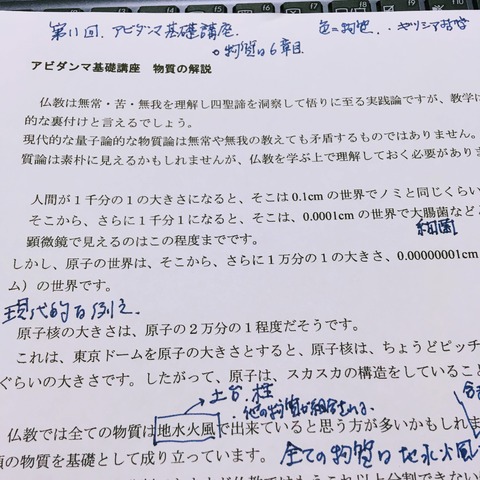 第11回. アビダンマ基礎講座.
色=物質. ギリシア哲学
物質は6章目
アビダンマ基礎講座　物質の解説
仏教は無常・苦・無我を理解し四聖諦を洞察して悟りに至る実践論ですが、教学は
的な裏付けと言えるでしょう。
現代的な量子論的な物質論は無常や無我の教えても矛盾するものではありません。
質論は素朴に見えるかもしれませんが、仏教を学ぶ上で理解しておく必要がありま
人間が１千分の１の大きさになると、そこは 0.1cm の世界でノミと同じくらい
そこから、さらに１千分１になると、そこは、0.0001cm の世界で大腸菌など
細菌
顕微鏡で見えるのはこの程度までです。
しかし、原子の世界は、そこから、さらに１万分の１の大きさ、0.00000001cm
ム）の世界です。
現代的な例え
原子核の大きさは、原子の２万分の１程度だそうです。
これは、東京ドームを原子の大きさとすると、原子核は、ちょうどピッチ
ぐらいの大きさです。したがって、原子は、スカスカの構造をしていること
土台、柱
他の物質が組合される
仏教では全ての物質は地水火風で出来ていると思う方が多いかもしれま
類の物質を基礎として成り立っています。
全ての物質は地水火風